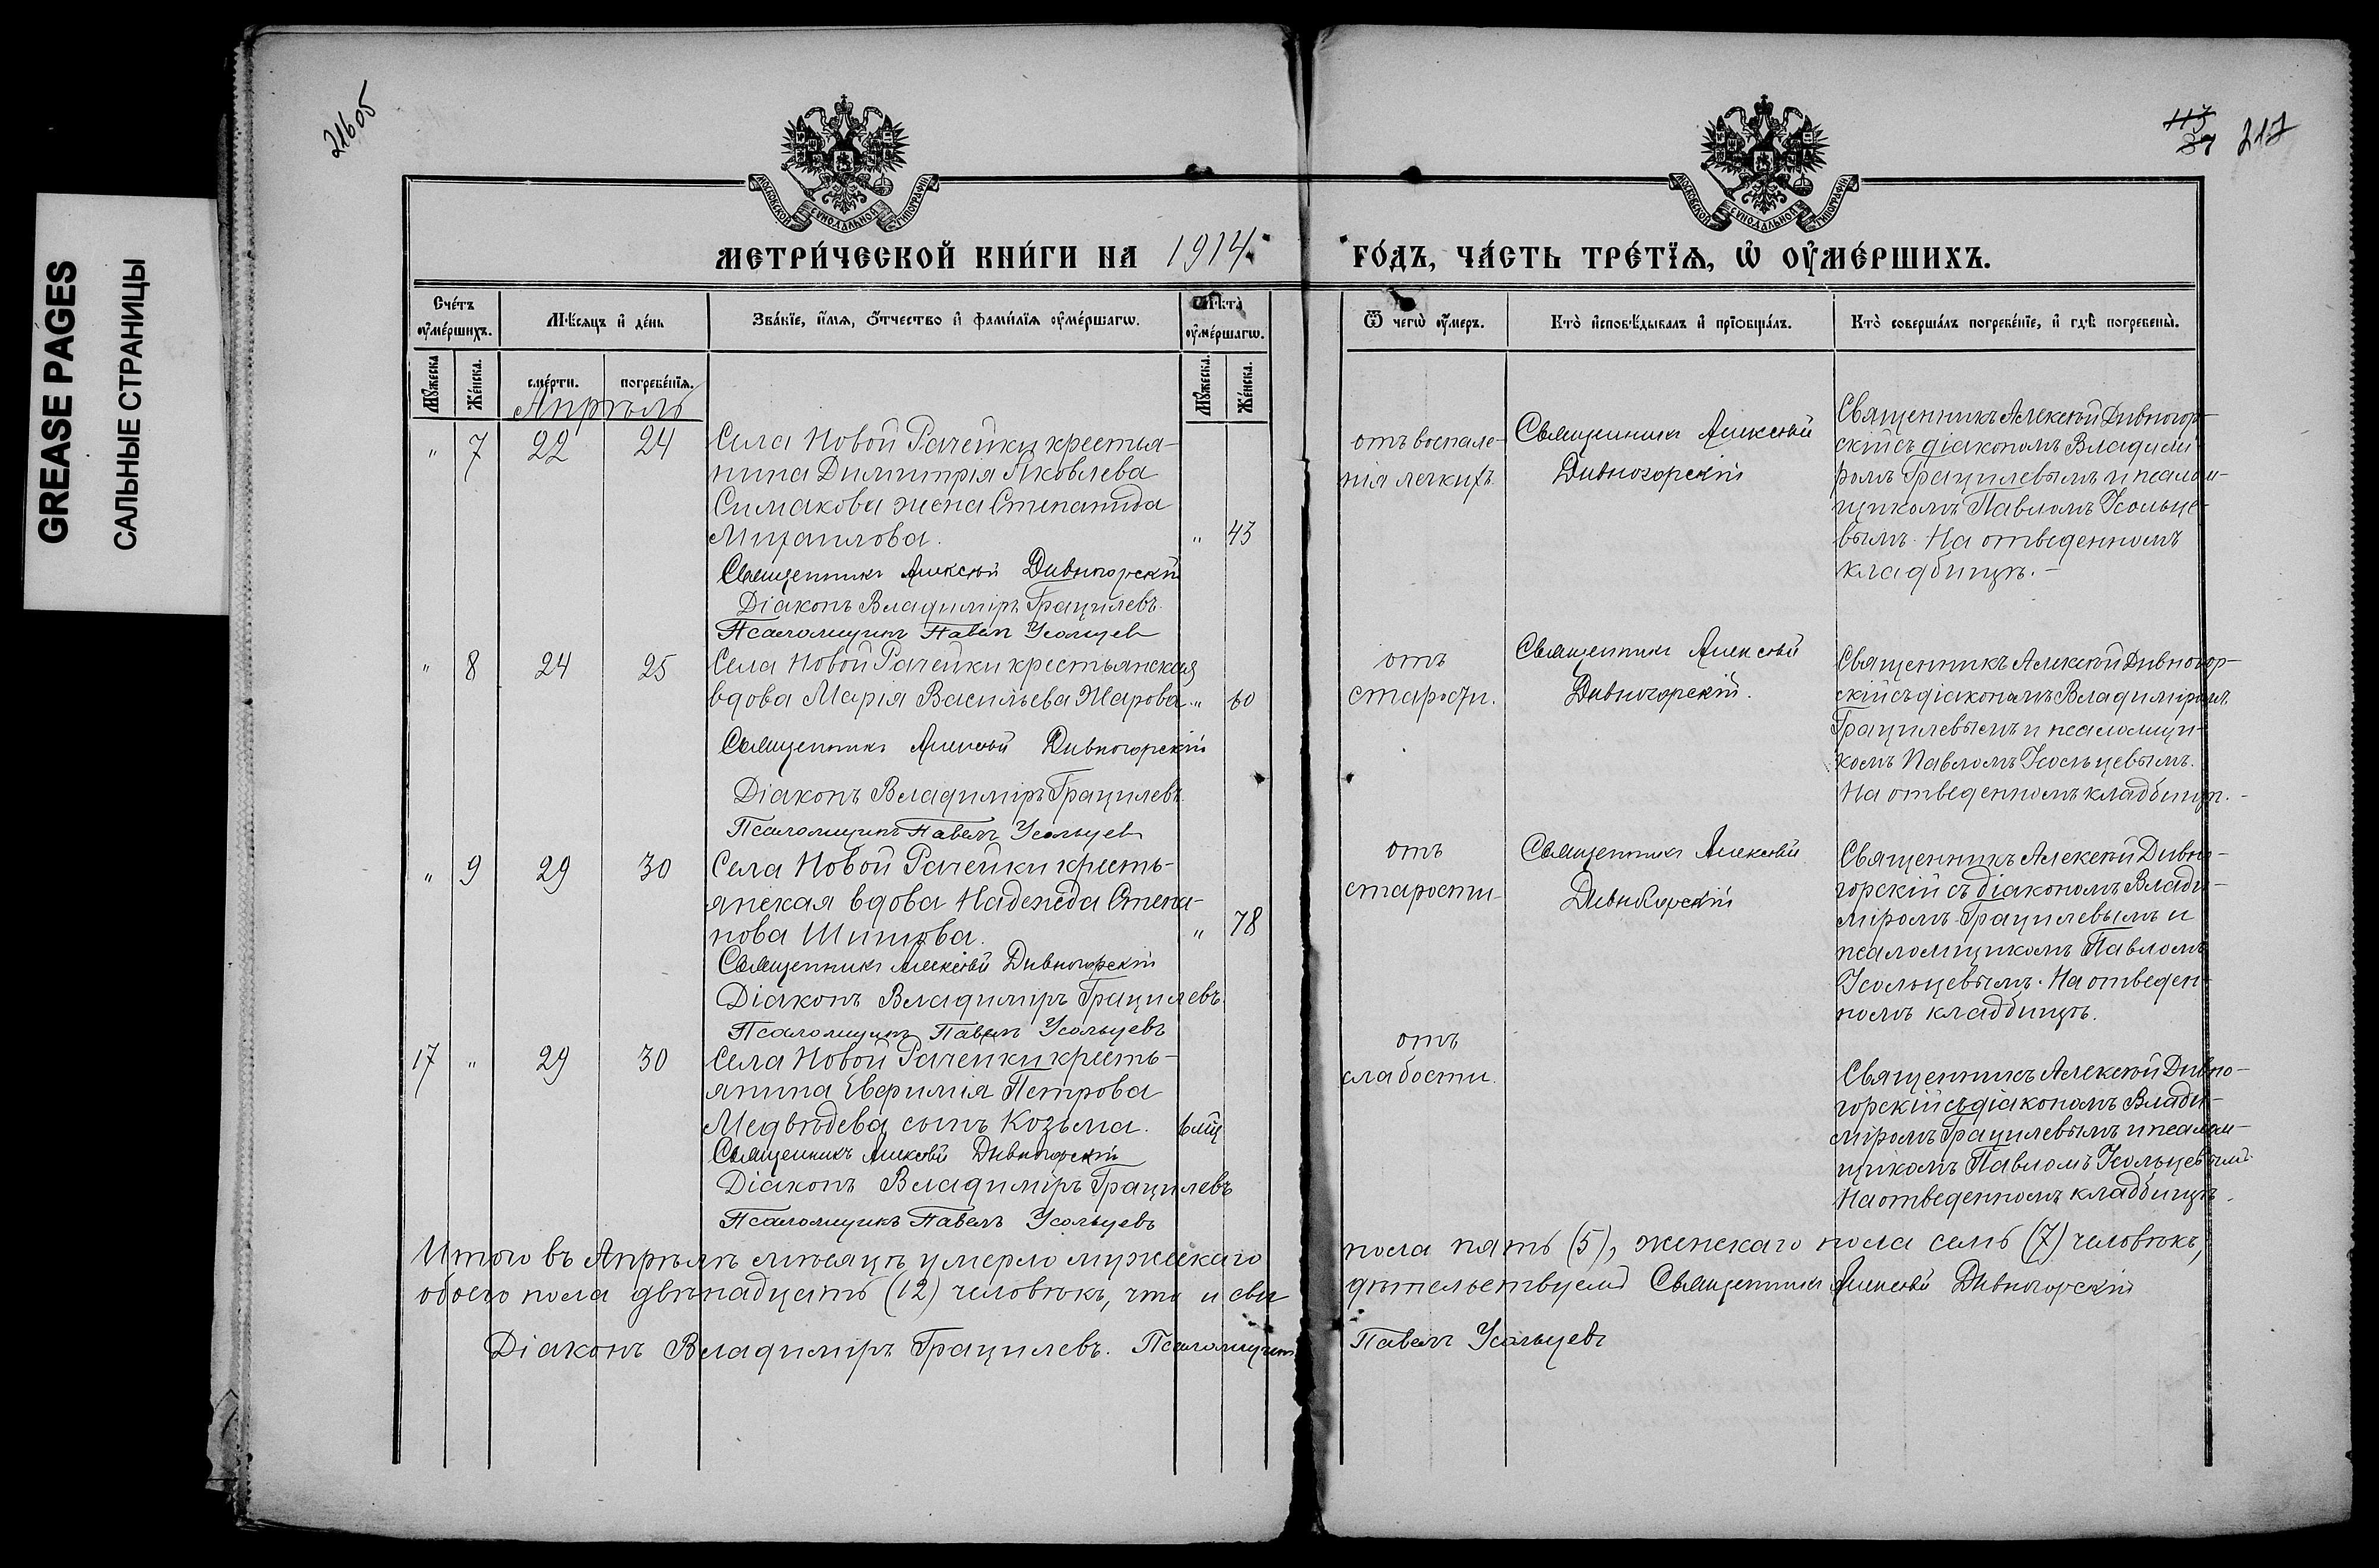 GREASE PAGES
САЛЬНЫЕ СТРАНИЦЫ
216об
115
37 217
МОСКОВСКОЙ СѴНОДАЛЬНОЙ ТИПОГРАФІИ
МОСКОВСКОЙ СѴНОДАЛЬНОЙ ТИПОГРАФІИ
МЕТРИ́ЧЕСКОЙ КНИ́ГИ НА 1914
ГО́ДЪ, ЧА́СТЬ ТРЕ́ТЇѦ, Ѡ҆ ОУ҆МЕ́РШИХЪ.
Сче́тъ оу҆ме́ршихъ.
Мѣ́сѧцъ и҆ де́нь
Зва́нїе, и҆́мѧ, ѻ҆́тчество и҆ фами́лїѧ оу҆ме́ршагѡ.
Лѣ́та оу҆ме́ршагѡ.
Ѿ чегѡ̀ оу҆́меръ.
Кто̀ и҆сповѣ́дывалъ и҆ прїѡбща́лъ.
Кто̀ соверша́лъ погребе́нїе, и҆ гдѣ̀ погребены̀.
Мꙋ́жеска
Же́нска.
сме́рти.
погребе́нїѧ.
Мꙋ́жеска.
Же́нска.
Апрѣль
" 7 22 24
Села Новой Рачейки крестья-
нина Димитрія Яковлева
Симакова жена Степанида
Михаилова. " 43
Священникъ Алексѣй Дивногорскій
Діаконъ Владиміръ Грацилевъ.
Псаломщикъ Павелъ Усольцевъ
отъ воспале-
нія легкихъ
Священникъ Алексѣй
Дивногорскій
Священникъ Алексѣй Дивногор-
скій съ діакономъ Владимі-
ромъ Грацилевымъ и псалом-
щикомъ Павломъ Усольце-
вымъ. На отведенномъ
кладбищѣ.-
" 8 24 25
Села Новой Рачейки крестьянская
вдова Марія Васильева Жарова. " 60
Священникъ Алексѣй Дивногорскій
Діаконъ Владиміръ Грацилевъ.
Псаломщикъ Павелъ Усольцевъ
отъ
старости.
Священникъ Алексѣй
Дивногорскій.
Священникъ Алексѣй Дивногор-
скій съ діакономъ Владиміромъ
Грацилевымъ и псаломщи-
комъ Павломъ Усольцевымъ.
На отведенномъ кладбищѣ.-
" 9 29 30
Села Новой Рачейки кресть-
янская вдова Надежда Степа-
нова " 78
Священникъ Алексѣй Дивногорскій
Діаконъ Владиміръ Грацилевъ.
Псаломщикъ Павелъ Усольцевъ
отъ
старости
Священникъ Алексѣй
Дивногорскій
Священникъ Алексѣй Дивно-
горскій съ діакономъ Влади-
міромъ Грацилевымъ и
псаломщикомъ Павломъ
Усольцевымъ. На отведен-
номъ кладбищѣ.
17 " 29 30
Села Новой Рачейки кресть-
янина Евфимія Петрова
Медвѣдева сынъ Козьма. 6 мц
Священникъ Алексѣй Дивногорскій
Діаконъ Владиміръ Грацилевъ
Псаломщикъ Павелъ Усольцевъ
отъ
слабости.
Священникъ Алексѣй Дивно-
горскій съ діакономъ Влади-
міромъ Грацилевымъ и псалом-
щикомъ Павломъ Усольцевымъ.
На отведенномъ кладбищѣ.
Итого въ Апрѣлѣ мѣсяцѣ умерло мужескаго пола пять (5), женскаго пола семь (7) человѣкъ,
обоего пола двѣнадцать (12) человѣкъ, что и сви дѣтельствуемъ Священникъ Алексѣй Дивногорскій
Діаконъ Владиміръ Грацилевъ. Псаломщикъ Павелъ Усольцевъ